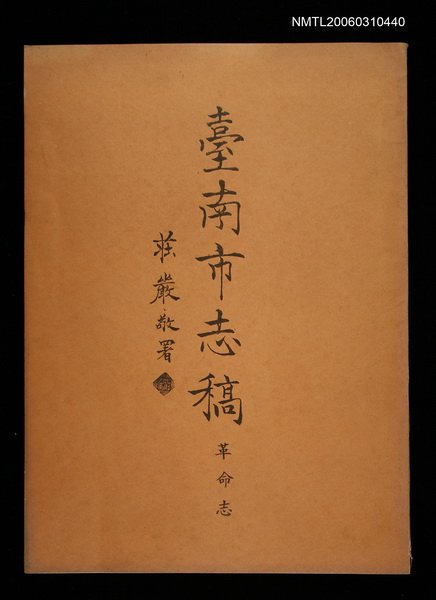 NMTL20060310440
臺南市志稿
革命志
莊嚴敬署